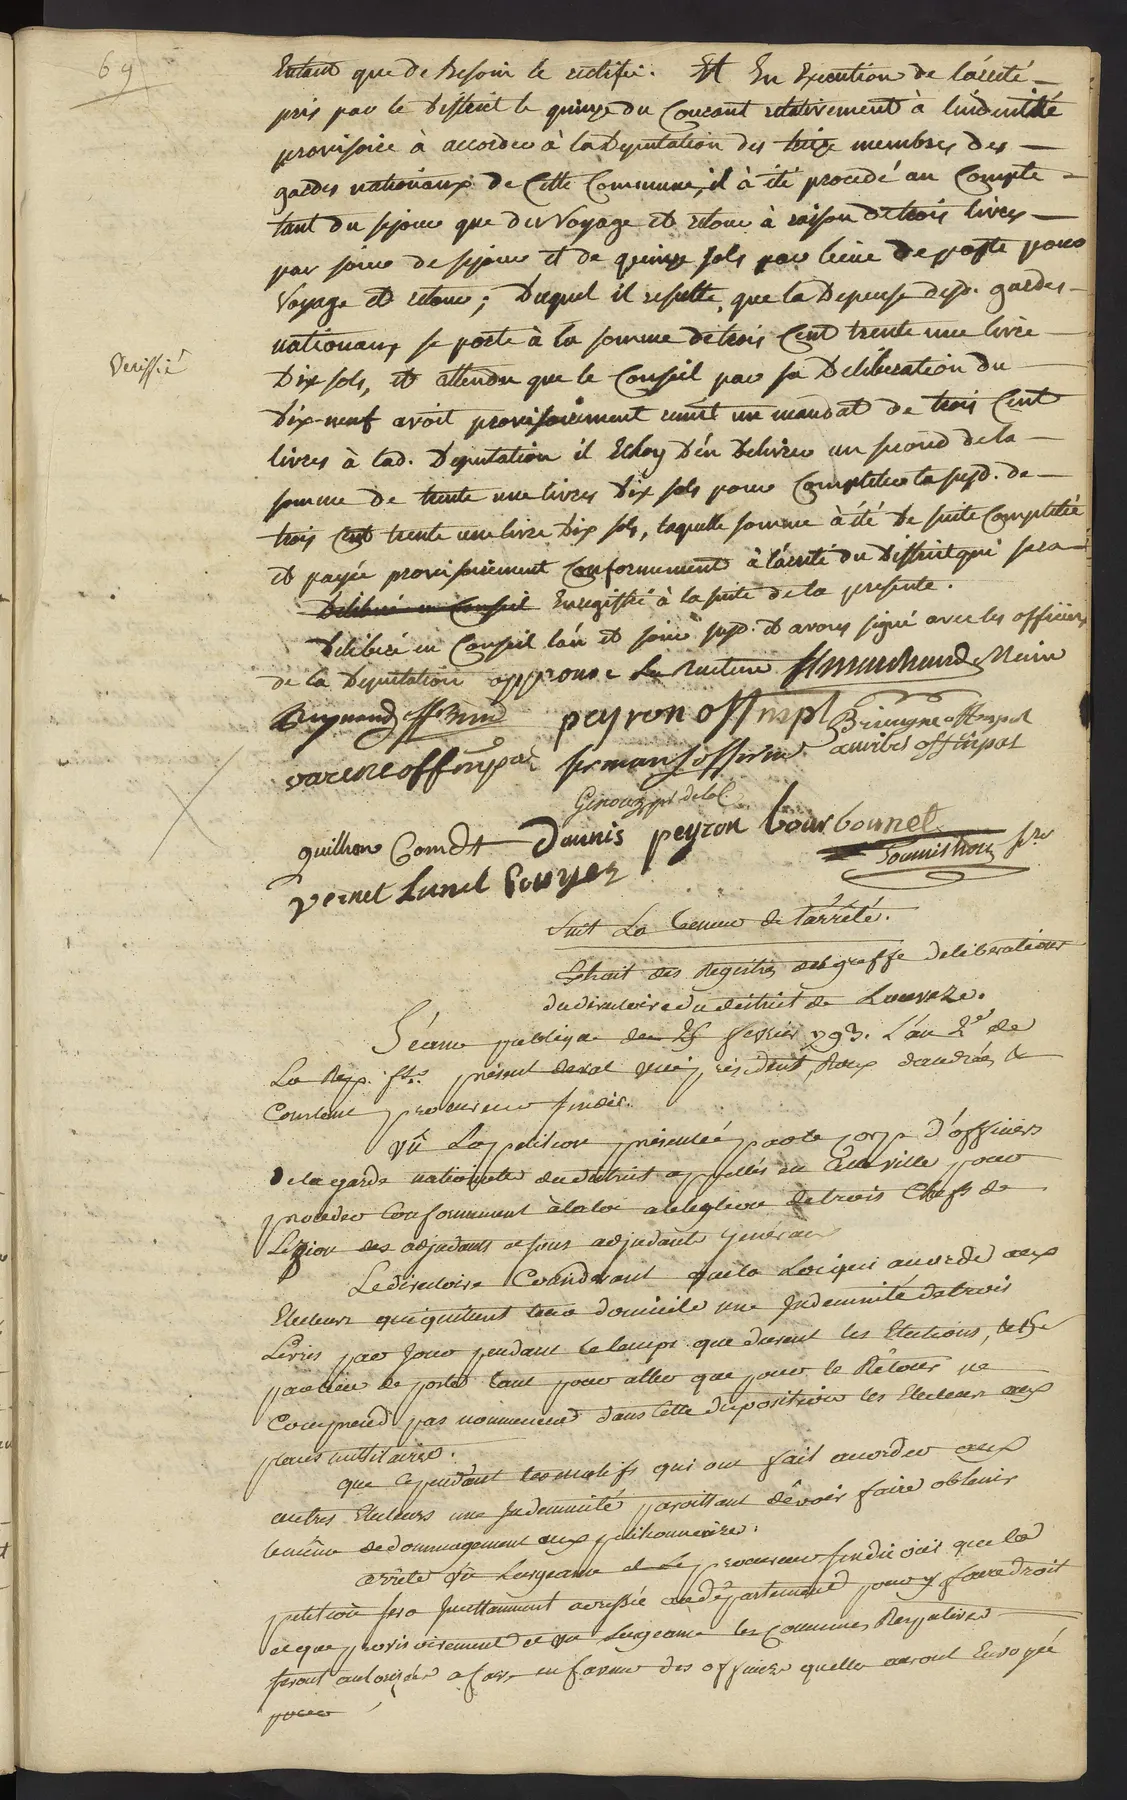 69
Entant que de Besoin le rectifié. Et En Execution de l'arreté
pris par le District le quinze du Courant relativement à l'indemnité
provisoire à accorder à la Deputation des treize membres des
gardes nationaux de Cette Commune, il à été procedé au Compte
tant du sejour que du Voyage et retour à raison de trois livres
par jour de sejour et de quinze sols par lieue de poste pour
Voyage et retour; Duquel il resulte, que la Depense desd. gardes
nationaux se porte à la somme de trois Cent trente une livre
Veriffié
Dix sols, et attendu que le Conseil par sa Deliberation du
Dix-neuf avoit provisoirement remit un mandat de trois Cent
livres à lad. Deputation il Echoy D'en Delivrer un second de la
somme de trente une livres Dix sols pour Completter la susd. de
trois Cent trente une livre Dix sols, laquelle somme à été De suite Complettée
et payée provisoirement Conformement à l'arreté du District qui sera
Deliberé en Conseil Enregistré à la suite de la presente.
Deliberé en Conseil l'an et jour susd. et avons signé avec les officiers
de la Deputation approuvé La Rature Marchand Maire
Reynaud off peyron off mpl off mpal
varene off mpal off mpal
Giroux
guilhon Comdt Daunis peyron bourbounel
Vernet Lunel
Suit La teneur de l'arrêté.
Extrait des Registres du greffe deliberations
du directoire du district de Louveze.
Séance publique du 15 fevrier 1793. L'an 2d de
La Rep. fse present deval vice president, Roux, d'andrée, &
Courtens procureur sindic.
Vû La petition présentée par le corp d'officiers
de la garde nationalle du district appellés en Cette ville pour
proceder Conformement à la loi a l'elegtion de trois Chefs de
Legion des adjudants et sous adjudants generaux
Le directoire Considerant que la Loi qui accorde aux
Electeurs qui quitent leur domicile une Indemnité de trois
Livres par Jour pendant le temps que durent les Elections, et 15s
par lieu de poste tant pour aller que pour le Rétour ne
Comprend pas nommement dans Cette disposition les Electeurs aux
places militaires.
que Cependant les motifs qui ont fait accorder aux
autres Electeurs une Indemnité paroissent dêvoir faire obtenir
le même dedommagement aux petitionnaires.
arrête vû l'urgeance et Le procureur sindic ouis que la
petition sera Incessamment adressée au département pour y faire droit
et que provisoirement et vu l'urgeance les Communes Respectives
seront autorisées a faire en faveur des officiers quelles auront Envoyé
pour